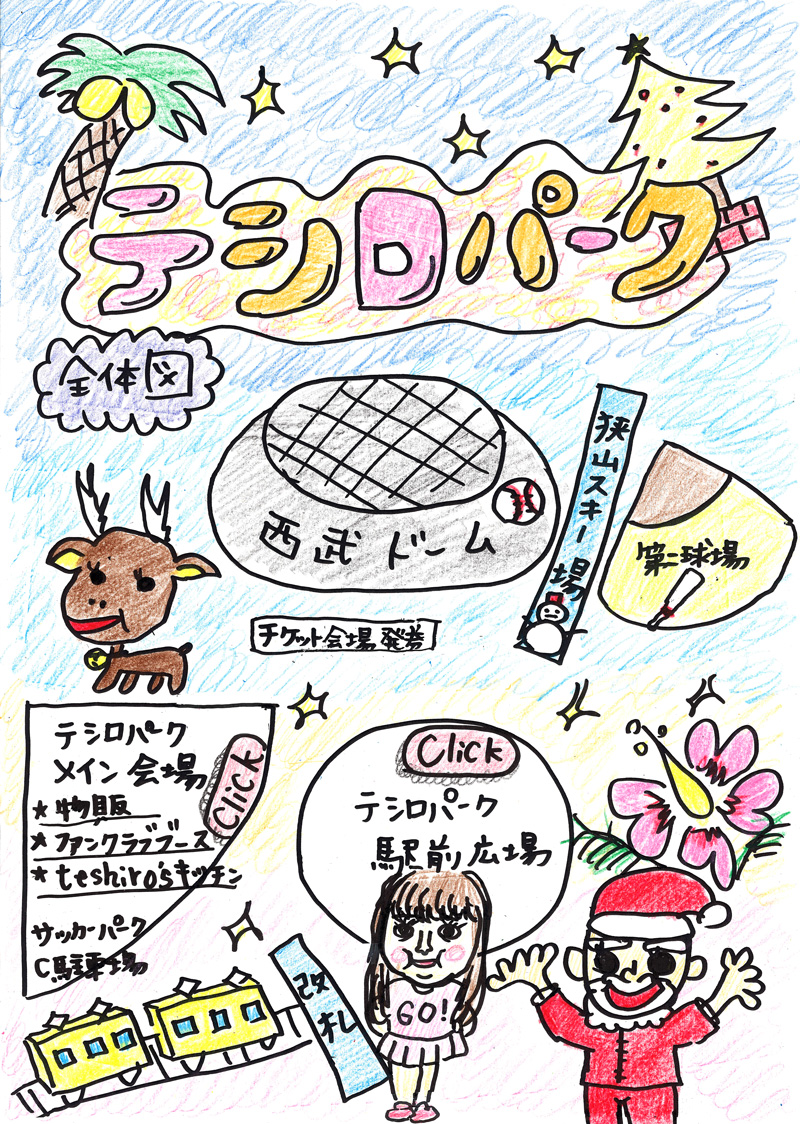 テシロパーク
全体図
西武ドーム
狭山スキー場
第二球場
チケット会場発券
テシロパーク
メイン会場
Click
★物販
★ファンクラブブース
★teshiro'sキッチン
サッカーパーク
C駐車場
Click
テシロパーク
駅前広場
改札
GO!